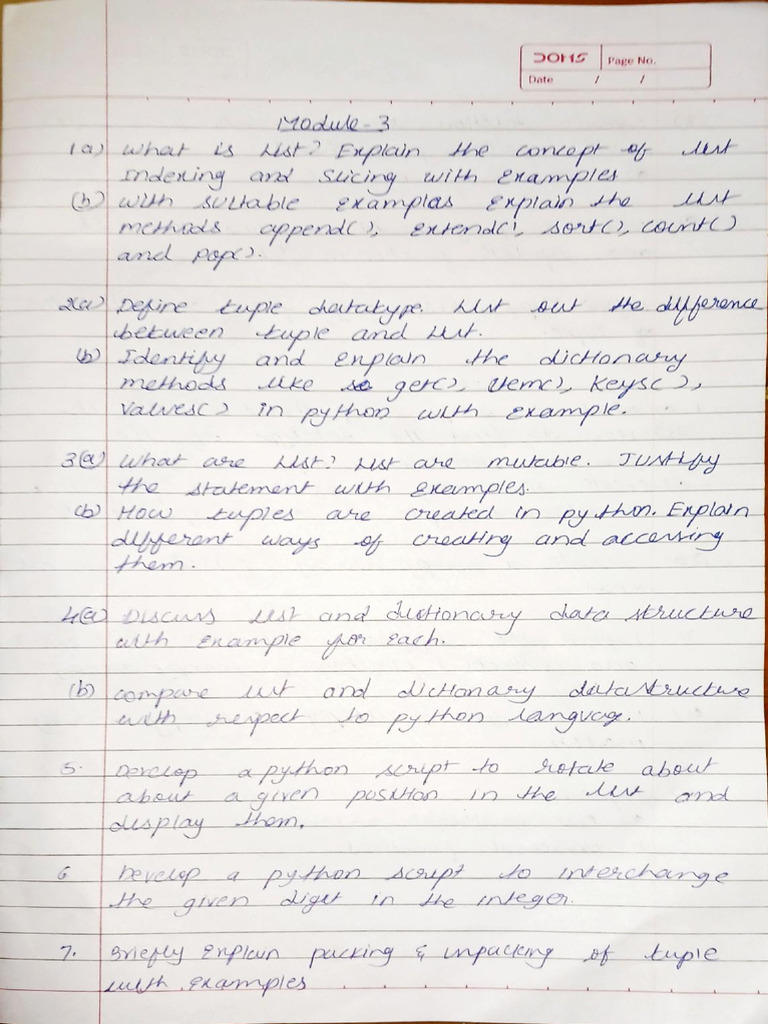 DOMS
Page No.
Date / /
Module-3
1a) What is List? Explain the concept of list
Indexing and Slicing with Examples
(b) with suitable examples explain the list
methods append(), extend(), sort(), count()
and pop().
2(a) Define tuple datatype. List out the difference
between tuple and List.
(b) Identify and explain the dictionary
methods like get(), item(), keys(),
values() in python with example.
3(a) What are List? List are mutable. Justify
the statement with examples.
(b) How tuples are created in python. Explain
different ways of creating and accessing
them.
4(a) Discuss list and dictionary data structure
with example for each.
(b) compare list and dictionary datastructure
with respect to python language.
5. Develop a python script to rotate about
about a given position in the list and
display them.
6 Develop a python script to interchange
the given digit in the integer.
7. Briefly Explain packing & unpacking of tuple
with examples